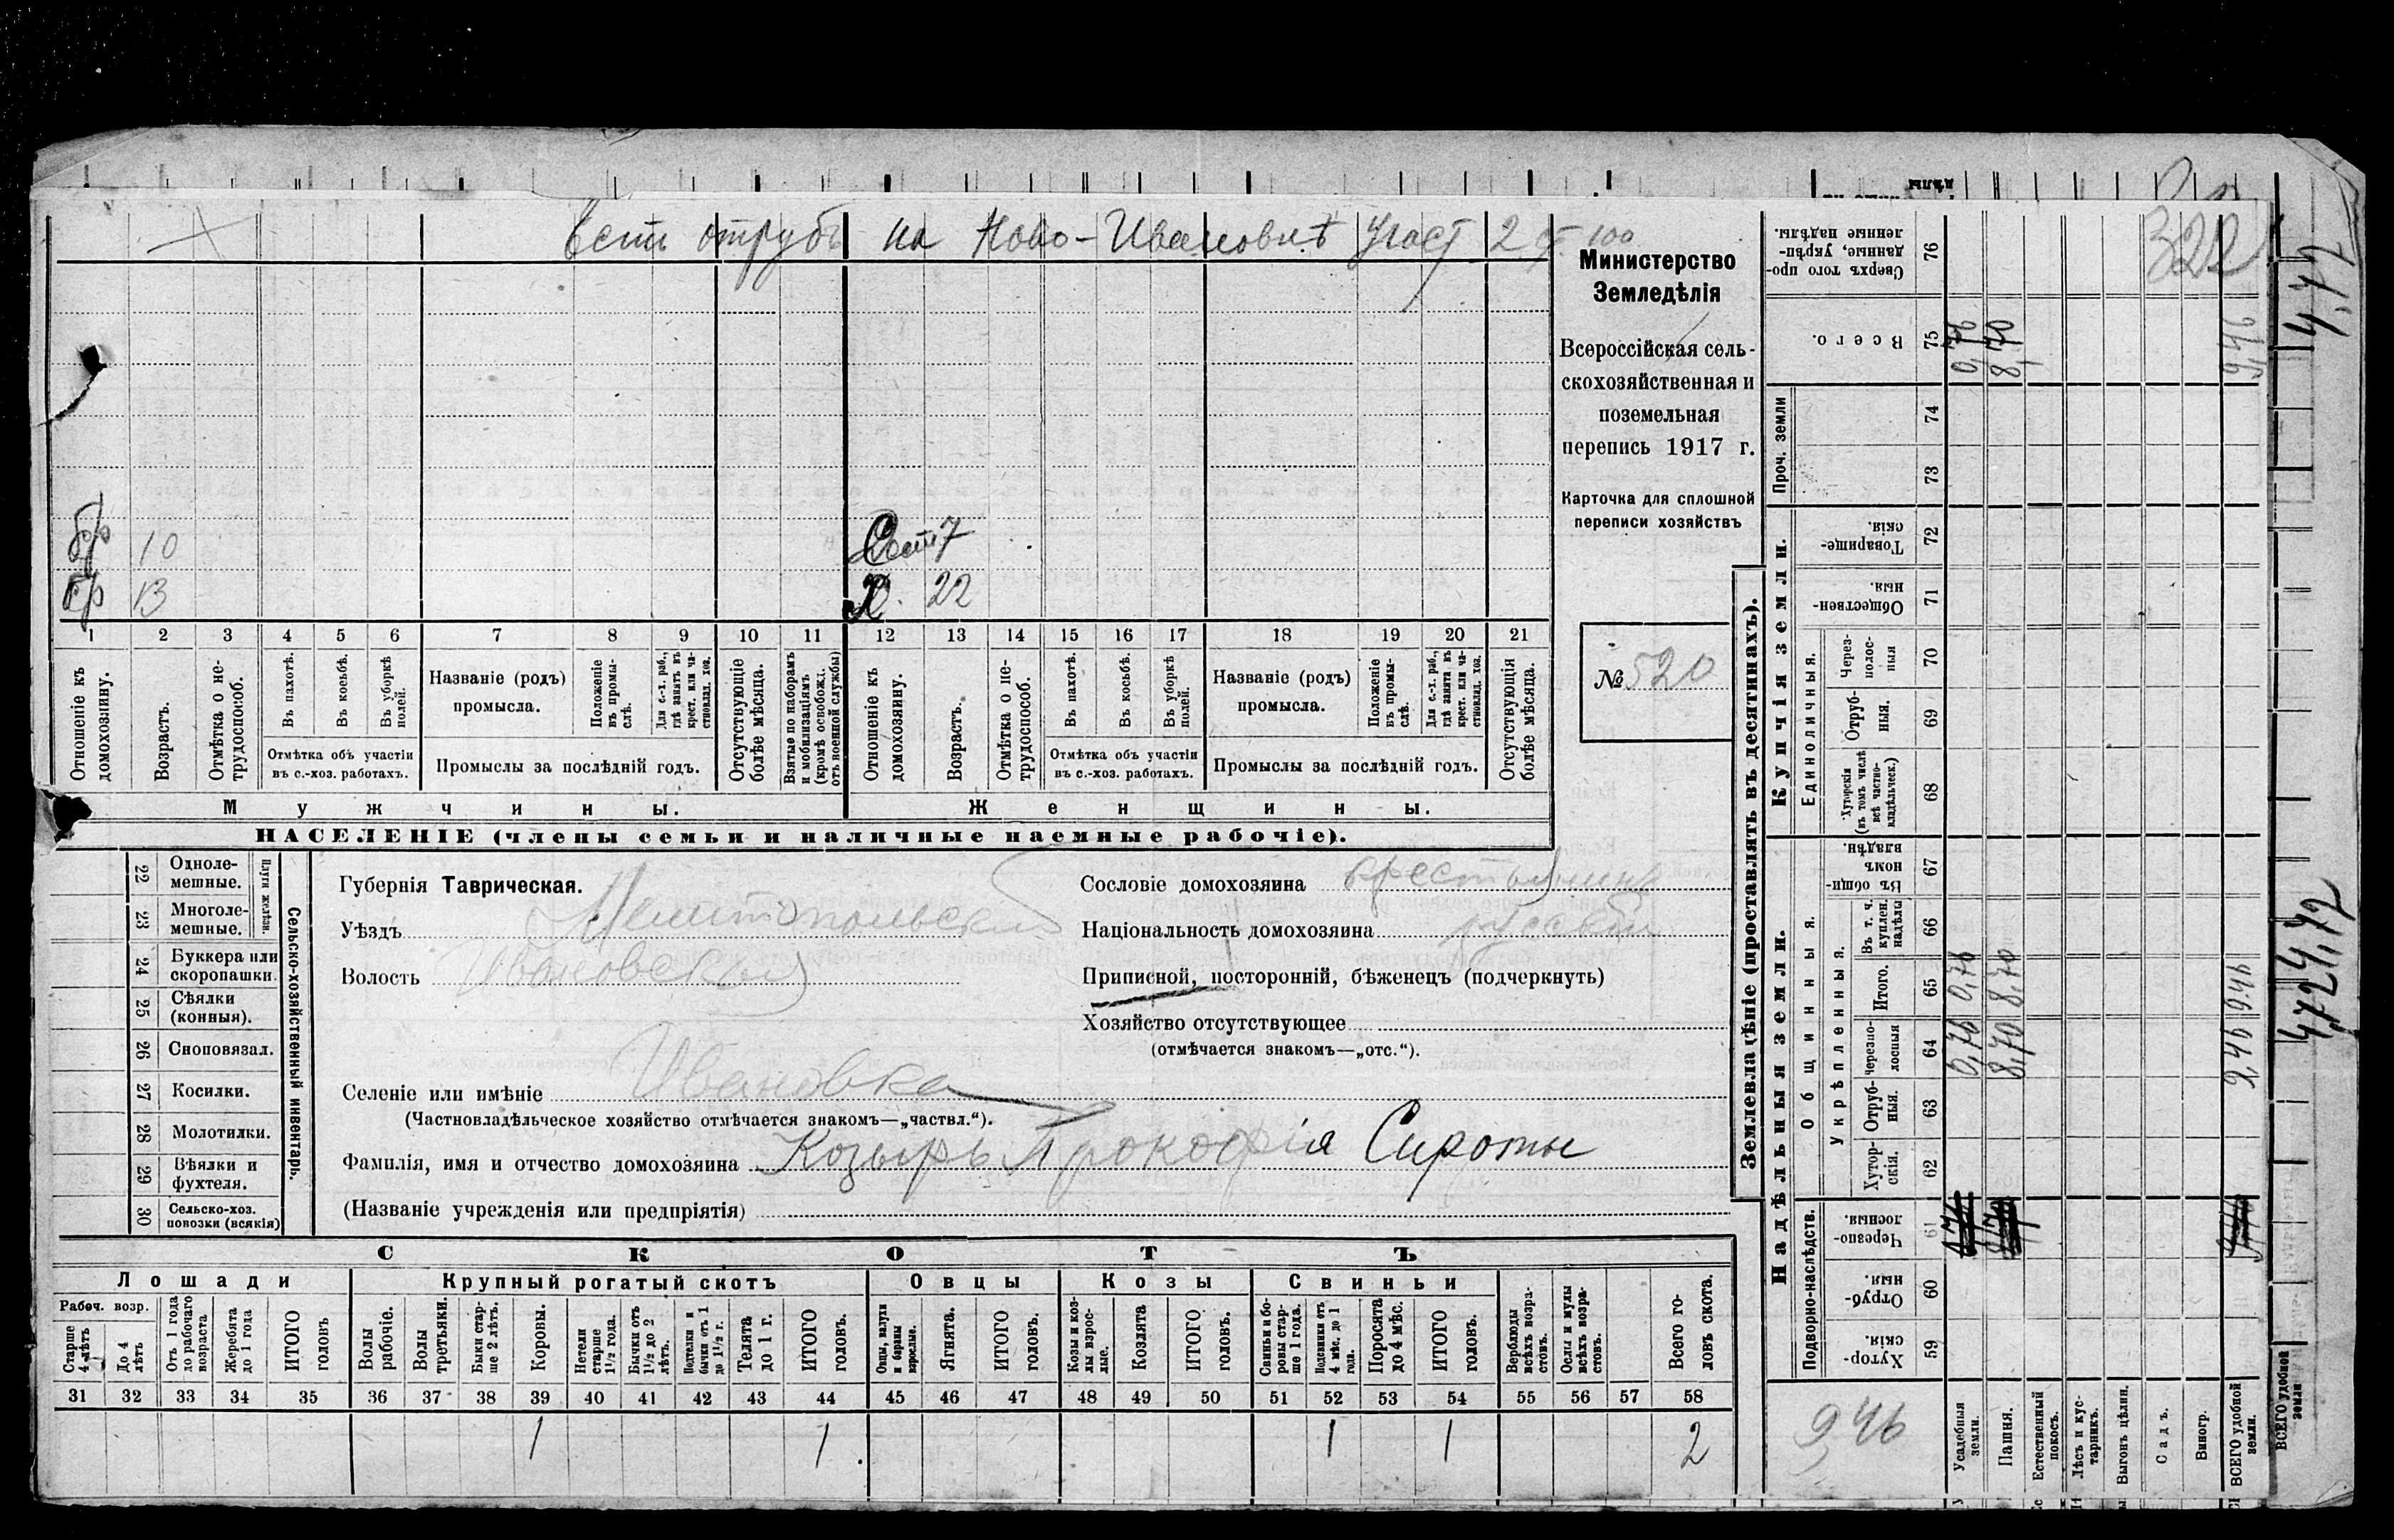 Есть отрубъ на Ново-Ивановкѣ Участ 2
Министерство
Земледѣлія
Всероссійская сель-
скохозяйственная и
поземельная
перепись 1917 г.
Карточка для сплошной
переписи хозяйствъ
№ 520
бр 10 Сест 7
бр 13 Х. 22
1 2 3 4 5 6 7 8 9 10 11 12 13 14 15 16 17 18 19 20 21
Отношеніе къ домохозяину.
Возрастъ.
Отмѣтка о не-трудоспособ.
Въ пахотѣ.
Въ косьбѣ.
Въ уборкѣ полей.
Отмѣтка объ участіи
въ с.-хоз. работахъ.
Названіе (родъ)
промысла.
Положеніе въ промы-слѣ.
Для с.-х. раб., гдѣ занятъ въ крест. или ча-стновлад. хоз.
Промыслы за послѣдній годъ.
Отсутствующіе болѣе мѣсяца.
Взятые по наборамъ и мобилизаціямъ (кромѣ освобожд. отъ военной службы)
Отношеніе къ домохозяину.
Возрастъ.
Отмѣтка о не-трудоспособ.
Въ пахотѣ.
Въ косьбѣ.
Въ уборкѣ полей.
Отмѣтка объ участіи
въ с.-хоз. работахъ.
Названіе (родъ)
промысла.
Положеніе въ промы-слѣ.
Для с.-х. раб., гдѣ занята въ крест. или ча-стновлад. хоз.
Промыслы за послѣдній годъ.
Отсутствующія болѣе мѣсяца.
Мужчины.
Женщины.
НАСЕЛЕНІЕ (члены семьи и наличные наемные рабочіе).
22 Одноле-мешные.
23 Многоле-мешные.
Плуги желѣзн.
24 Буккера или скоропашки.
25 Сѣялки (конныя).
26 Сноповязал.
27 Косилки.
28 Молотилки.
29 Вѣялки и фухтеля.
30 Сельско-хоз. повозки (всякія)
Сельско-хозяйственный инвентарь.
Губернія Таврическая.
Уѣздъ Мелитопольскій
Волость Ивановская
Селеніе или имѣніе Ивановка
(Частновладѣльческое хозяйство отмѣчается знакомъ—„частвл.“).
Фамилія, имя и отчество домохозяина Козырь Прокофія Сироты
(Названіе учрежденія или предпріятія)
Сословіе домохозяина крестьянинъ
Національность домохозяина русскій
Приписной, посторонній, бѣженецъ (подчеркнуть)
Хозяйство отсутствующее
(отмѣчается знакомъ—„отс.“).
СКОТЪ
Лошади
Крупный рогатый скотъ
Овцы
Козы
Свиньи
Рабоч. возр.
Старше 4 лѣтъ
До 4 лѣтъ
Отъ 1 года до рабочаго возраста
Жеребята до 1 года
ИТОГО головъ
Волы рабочіе.
Волы третьяки.
Быки стар-ше 2 лѣтъ.
Коровы.
Нетели старше 1½ года.
Бычки отъ 1½ до 2 лѣтъ.
Подтелки и бычки отъ 1 до 1½ г.
Телята до 1 г.
ИТОГО головъ.
Овцы, валухи и бараны взрослые.
Ягнята.
ИТОГО головъ.
Козы и коз-лы взрос-лые.
Козлята
ИТОГО головъ.
Свиньи и бо-ровы стар-ше 1 года.
Подсвинки отъ 4 мѣс. до 1 года.
Поросята до 4 мѣс.
ИТОГО головъ.
Верблюды всѣхъ возра-стовъ.
Ослы и мулы всѣхъ возра-стовъ.
Всего го-ловъ скота.
31 32 33 34 35 36 37 38 39 40 41 42 43 44 45 46 47 48 49 50 51 52 53 54 55 56 57 58
1 1 1 1 2
Землевладѣніе (проставлять въ десятинахъ).
Надѣльныя земли.
Купчія земли.
Проч. земли
Подворно-наслѣдств.
Общинныя.
Укрѣпленныя.
Единоличныя.
Хутор-скія. 59
Отруб-ныя. 60
Черезпо-лосныя. 61
Хутор-скія. 62
Отруб-ныя. 63
Черезпо-лосныя 64
Итого. 65
Въ т. ч. куплен. надѣлы 66
Въ общин-номъ владѣн. 67
Хуторскія (въ томъ числѣ всѣ частно-владѣльческ.) 68
Отруб-ныя. 69
Через-полос-ныя 70
Обществен-ныя 71
Товарище-скія. 72
73
74
Всего. 75
Сверхъ того про-данные, укрѣп-ленные надѣлы. 76
Усадебныя земли.
0,76 0,76 0,76
Пашня.
8,70 8,70 8,70
Естественный покосъ.
Лѣсъ и кус-тарникъ.
Выгонъ цѣлин.
Садъ.
Виногр.
ВСЕГО удобной земли.
9,46 9,46 9,46
9,46
322
ВСЕГО удобной земли
4,72 4,72
4,72